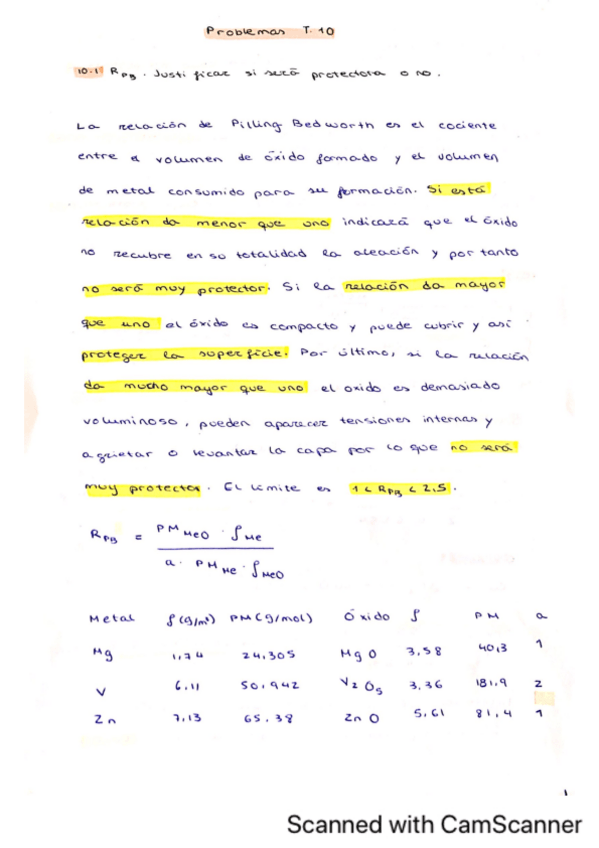 Problemas T. 10
10.1 RPB. Justificar si será protectora o no.
La relación de Pilling Bedworth es el cociente
entre el volumen de óxido formado y el volumen
de metal consumido para su formación. Si está
relación da menor que uno indicará que el óxido
no recubre en su totalidad la aleación y por tanto
no será muy protector. Si la relación da mayor
que uno el óxido es compacto y puede cubrir y así
proteger la superficie. Por último, si la relación
da mucho mayor que uno el oxido es demasiado
voluminoso, pueden aparecer tensiones internas y
agrietar o levantar la capa por lo que no será
muy protector. El límite es 1 < RPB < 2,5.
RPB = PM MeO · ρMe
a · PM Me · ρMeO
Metal ρ (g/m³) PM (g/mol) Óxido ρ PM a
Mg 1,74 24,305 MgO 3,58 40,3 1
V 6,11 50,942 V2O5 3,36 181,9 2
Zn 7,13 65,38 ZnO 5,61 81,4 1
1
Scanned with CamScanner